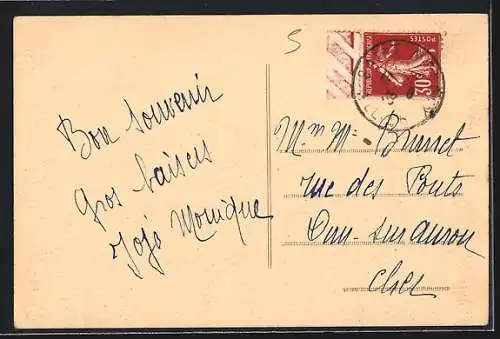 5
Bon souvenir
Gros baisers
Jojo Monique
POSTES
30
M. Mme Brisset
rue des Ponts
Dun-sur-Auron
Cher